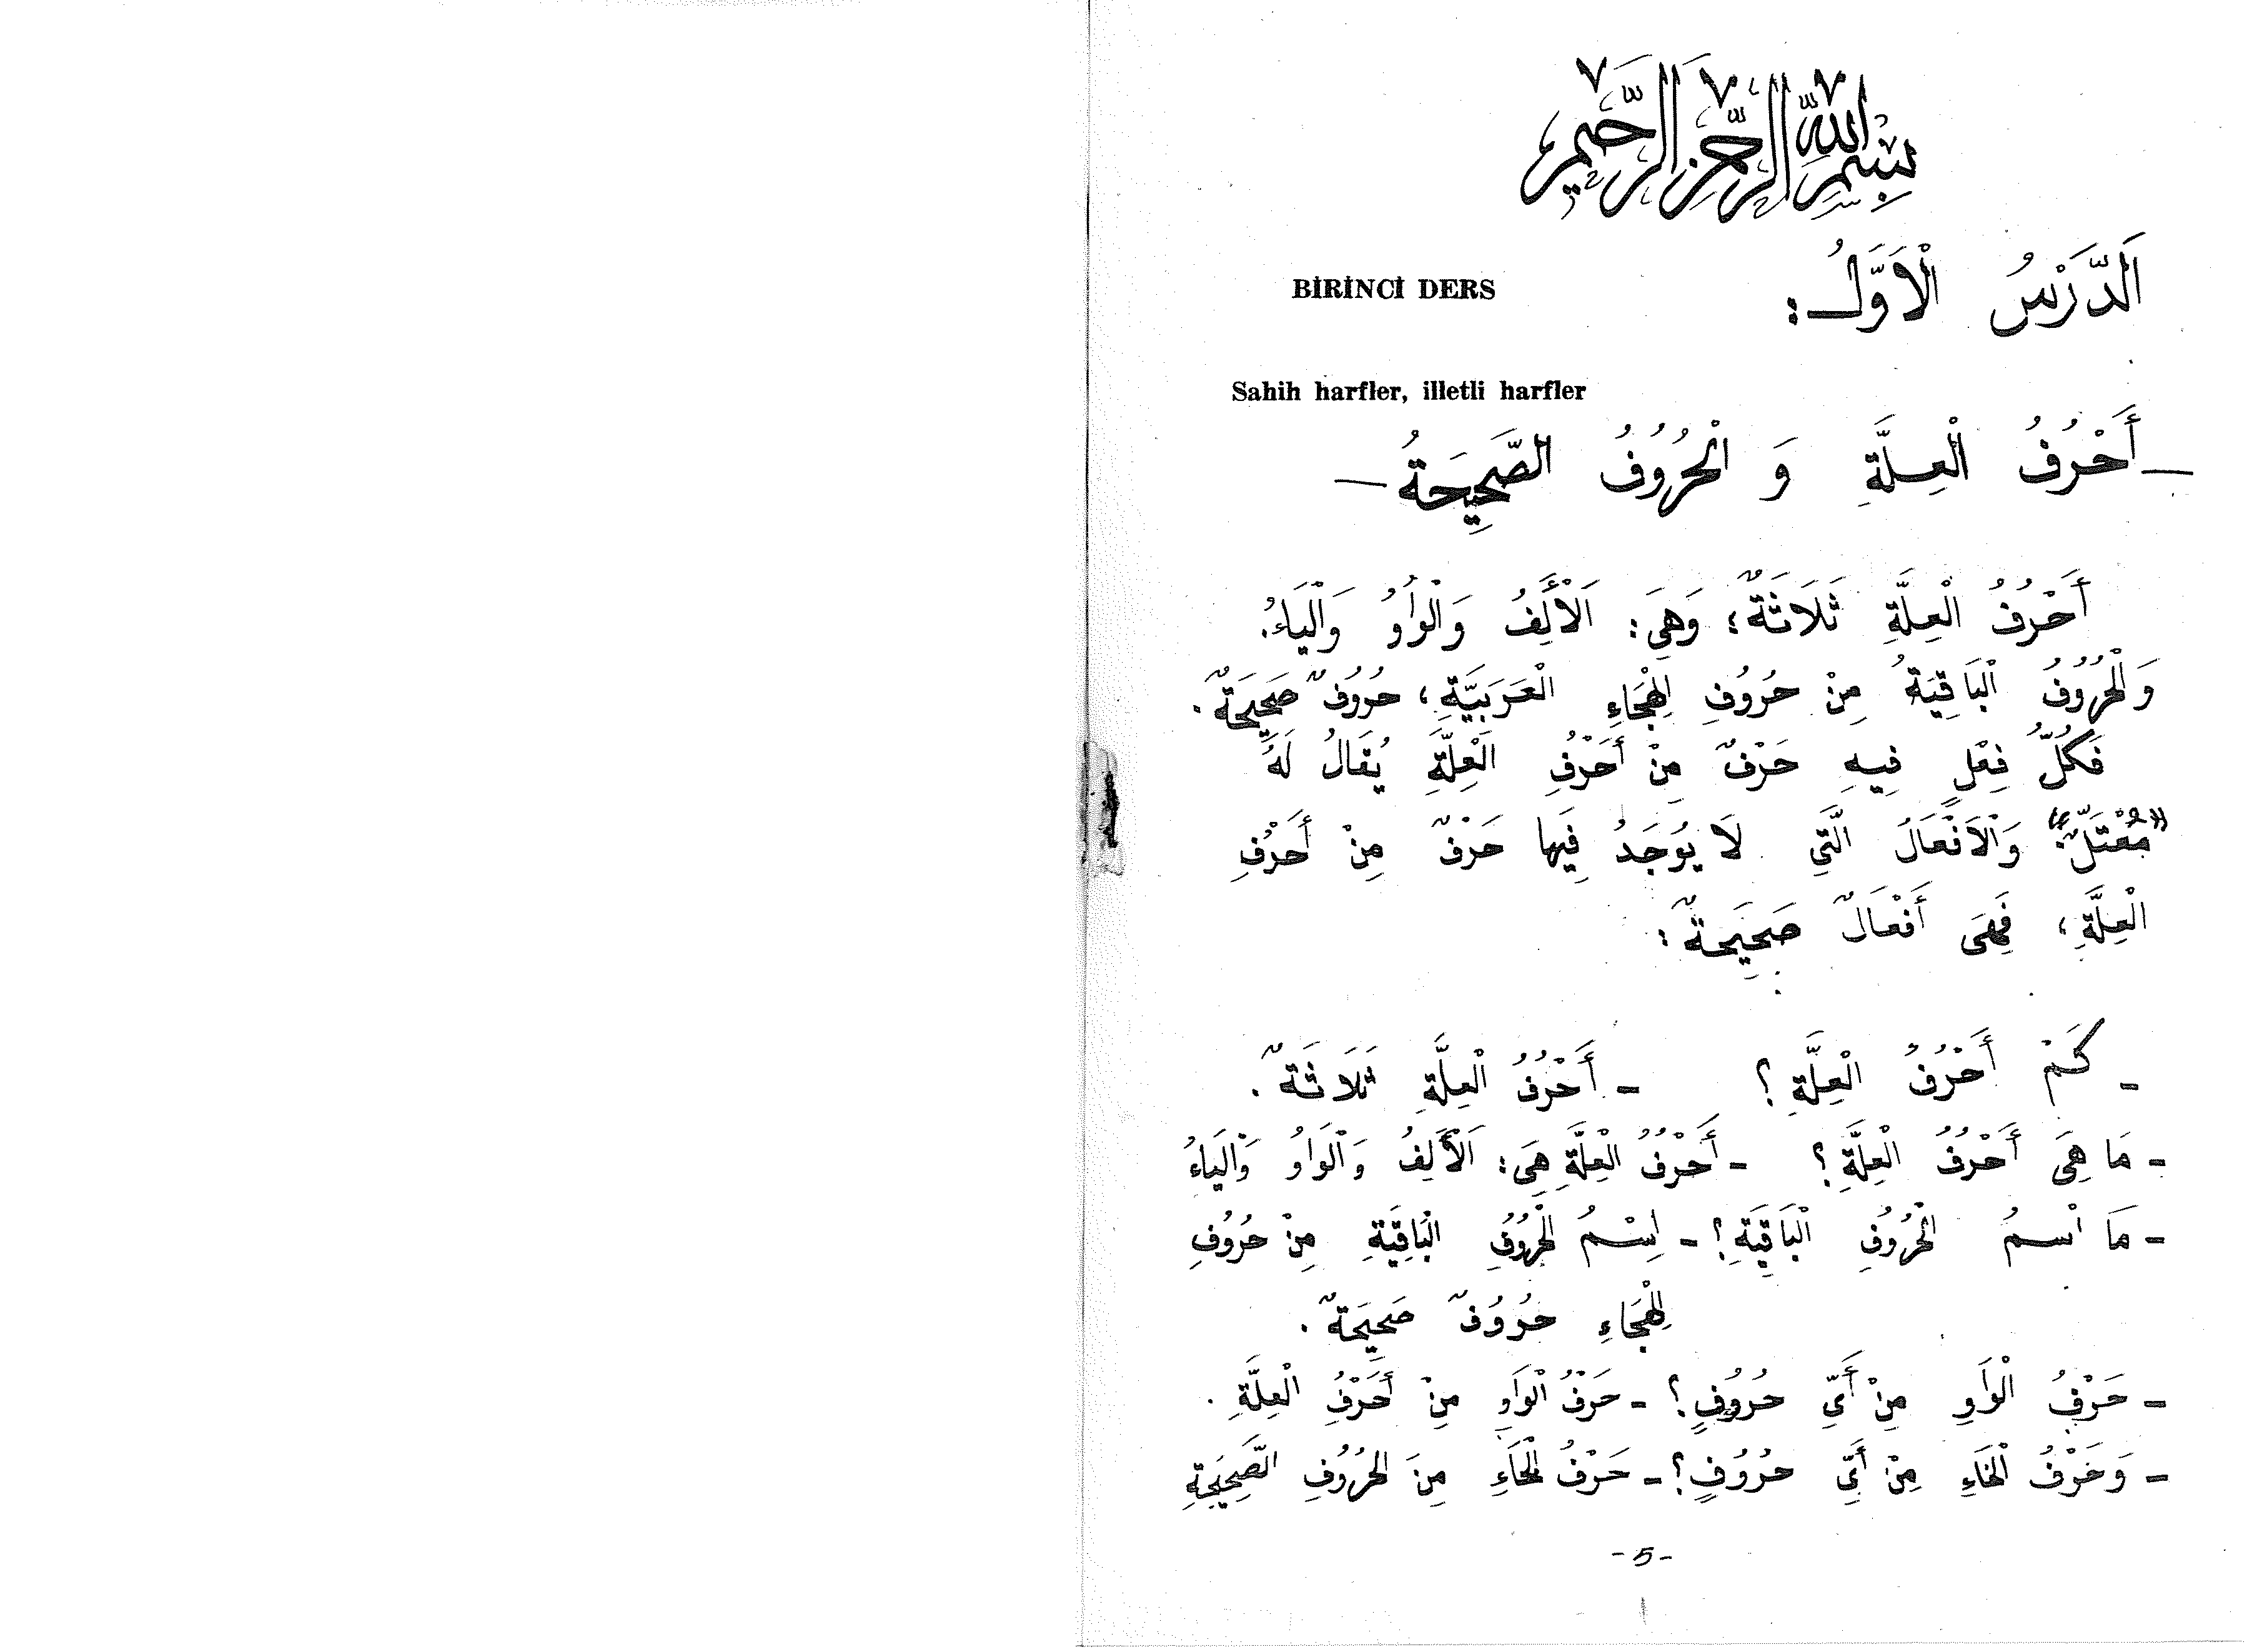 بِسْمِ اللهِ الرَّحْمنِ الرَّحِيمِ
اَلدَّرْسُ الْاَوَّلُ :
BİRİNCİ DERS
Sahih harfler, illetli harfler
— أَحْرُفُ الْعِلَّةِ وَ الْحُرُوُفُ الصَّحِيِحَةُ —
أَحْرُفُ الْعِلَّةِ ثَلَاثَةٌ؛ وَهِيَ: اَلْأَلِفُ وَالْوَاوُ وَالْيَاءُ.
وَالْحُرُوُفُ الْبَاقِيَةُ مِنْ حُرُوُفِ الْهِجَاءِ الْعَرَبِيَّةِ، حُرُوُفٌ صَحِيِحَةٌ.
فَكُلُّ فِعْلٍ فِيهِ حَرْفٌ مِنْ أَحْرُفِ الْعِلَّةِ يُقَالُ لَهُ
"مُعْتَلٌّ". وَالْاَفْعَالُ الَّتِي لَا يُوُجَدُ فِيهَا حَرْفٌ مِنْ أَحْرُفِ
الْعِلَّةِ، فَهِىَ أَفْعَالٌ صَحِيِحَةٌ :
- كَمْ أَحْرُفُ الْعِلَّةِ ؟ - أَحْرُفُ الْعِلَّةِ ثَلَاثَةٌ .
- مَا هِىَ أَحْرُفُ الْعِلَّةِ ؟ - أَحْرُفُ الْعِلَّةِ هِىَ: اَلْأَلِفُ وَالْوَاوُ وَالْيَاءُ
- مَا اْسمُ الْحُرُوُفِ الْبَاقِيَةِ ؟ - اِسْمُ الْحُرُوُفِ الْبَاقِيَةِ مِنْ حُرُوُفِ
الْهِجَاءِ حُرُوُفٌ صَحِيِحَةٌ .
- حَرْفُ الْوَاوِ مِنْ أَيِّ حُرُوُفٍ ؟ - حَرْفُ الْوَاوِ مِنْ أَحْرُفِ الْعِلَّةِ .
- وَحَرْفُ الْحَاءِ مِنْ أَيِّ حُرُوُفٍ ؟ - حَرْفُ الْحَاءِ مِنَ الحُرُوُفِ الصَّحِيِحَةِ
- 5 -